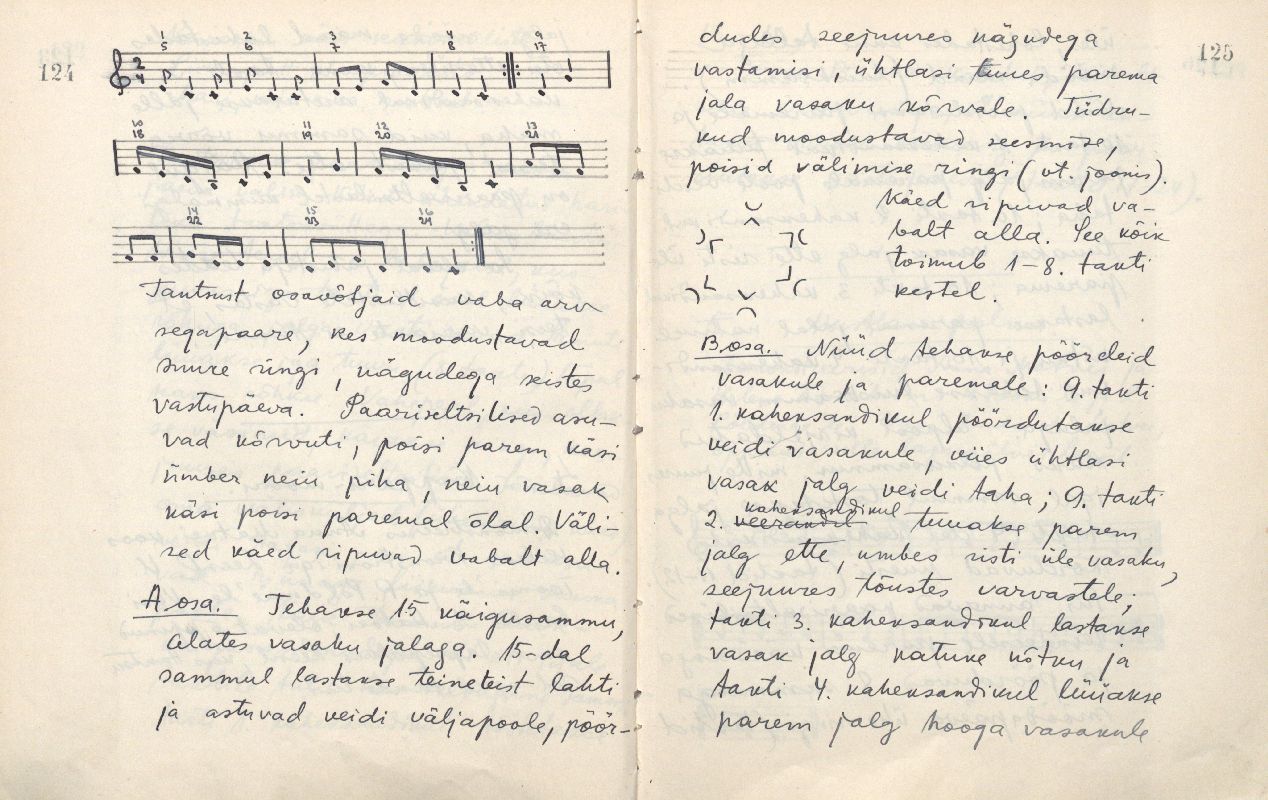 124
1 5
2 6
3 7
4 8
9 17
2 4
10 18
11 19
12 20
13 21
14 22
15 23
16 24
Tantsust osavõtjaid vaba arv
segapaare, kes moodustavad
suure ringi, nägudega seistes
vastupäeva. Paariseltsilised asu-
vad kõrvuti, poisi parem käsi
ümber neiu piha, neiu vasak
käsi poisi paremal õlal. Väli-
sed käed ripuvad vabalt alla.
A osa. Tehakse 15 käigusammu,
alates vasaku jalaga. 15-dal
sammul lastakse teineteist lahti
ja astuvad veidi väljapoole, pöör-
125
dudes seejuures nägudega
vastamisi, ühtlasi tuues parema
jala vasaku kõrvale. Tüdru-
kud moodustavad seesmise,
poisid välimise ringi (vt. joonis).
Käed ripuvad va-
balt alla. See kõik
toimub 1-8. takti
kestel.
B osa. Nüüd tehakse pöördeid
vasakule ja paremale: 9. takti
1. kaheksandikul pöördutakse
veidi vasakule, viies ühtlasi
vasak jalg veidi taha; 9. takti
kaheksandikul
2. veerandil tuuakse parem
jalg ette, umbes risti üle vasaku,
seejuures tõustes varvastele;
takti 3. kaheksandikul lastakse
vasak jalg natuke nõtku ja
takti 4. kaheksandikul lüüakse
parem jalg hooga vasakule